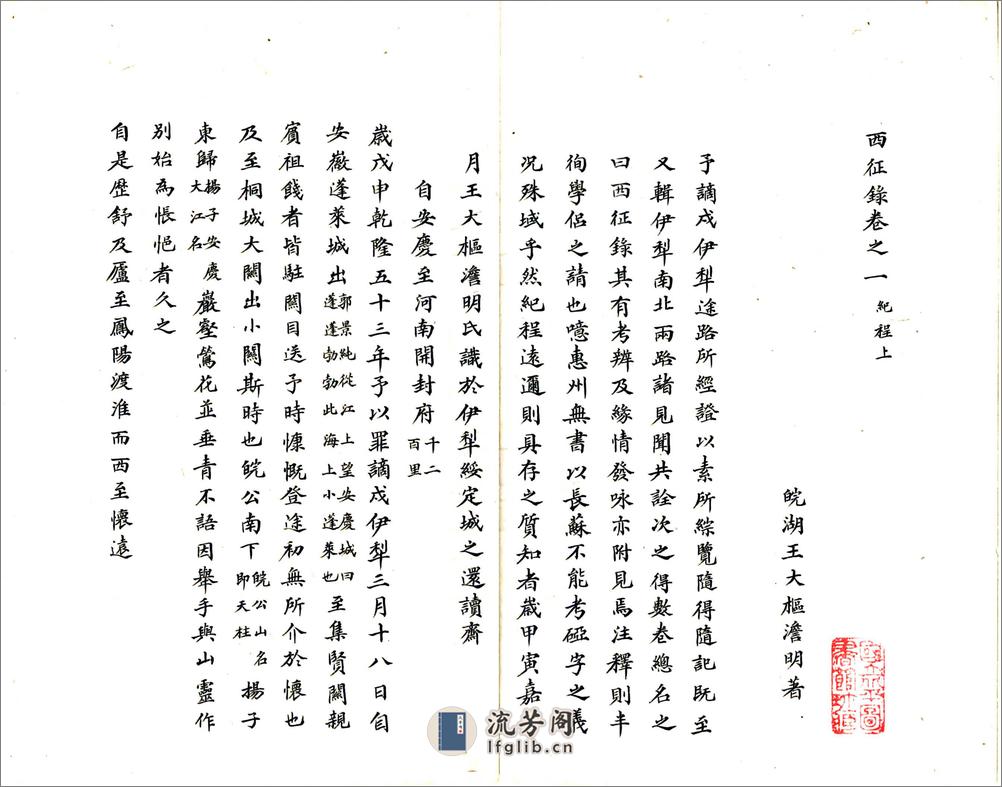 西征錄卷之一 紀程上
皖湖王大樞澹明著
予謫戍伊犁途路所經證以素所綜覽隨得隨記既至
又輯伊犁南北兩路諸見聞共詮次之得數卷總名之
曰西征錄其有考辨及緣情發咏亦附見焉注釋則丰
徇學侶之請也噫惠州無書以長蘇不能考砭字之義
况殊域乎然紀程遠邇則具存之質知者歲甲寅嘉
月王大樞澹明氏識於伊犁綏定城之還讀齋
自安慶至河南開封府 千二百里
歲戊申乾隆五十三年予以罪謫戍伊犁三月十八日自
安徽蓬萊城出 郭景純從江上望安慶城曰蓬蓬勃勃此海上小蓬萊也 至集賢關親
賓祖餞者皆駐關目送予時慷慨登途初無所介於懷也
及至桐城大關出小關斯時也皖公南下 皖公山名即天柱 揚子
東歸 揚子安慶大江名 巖壑鶯花並垂青不語因舉手與山靈作
別始為悵悒者久之
自是歷舒及廬至鳳陽渡淮而西至懷遠
流芳阁
lfglib.cn